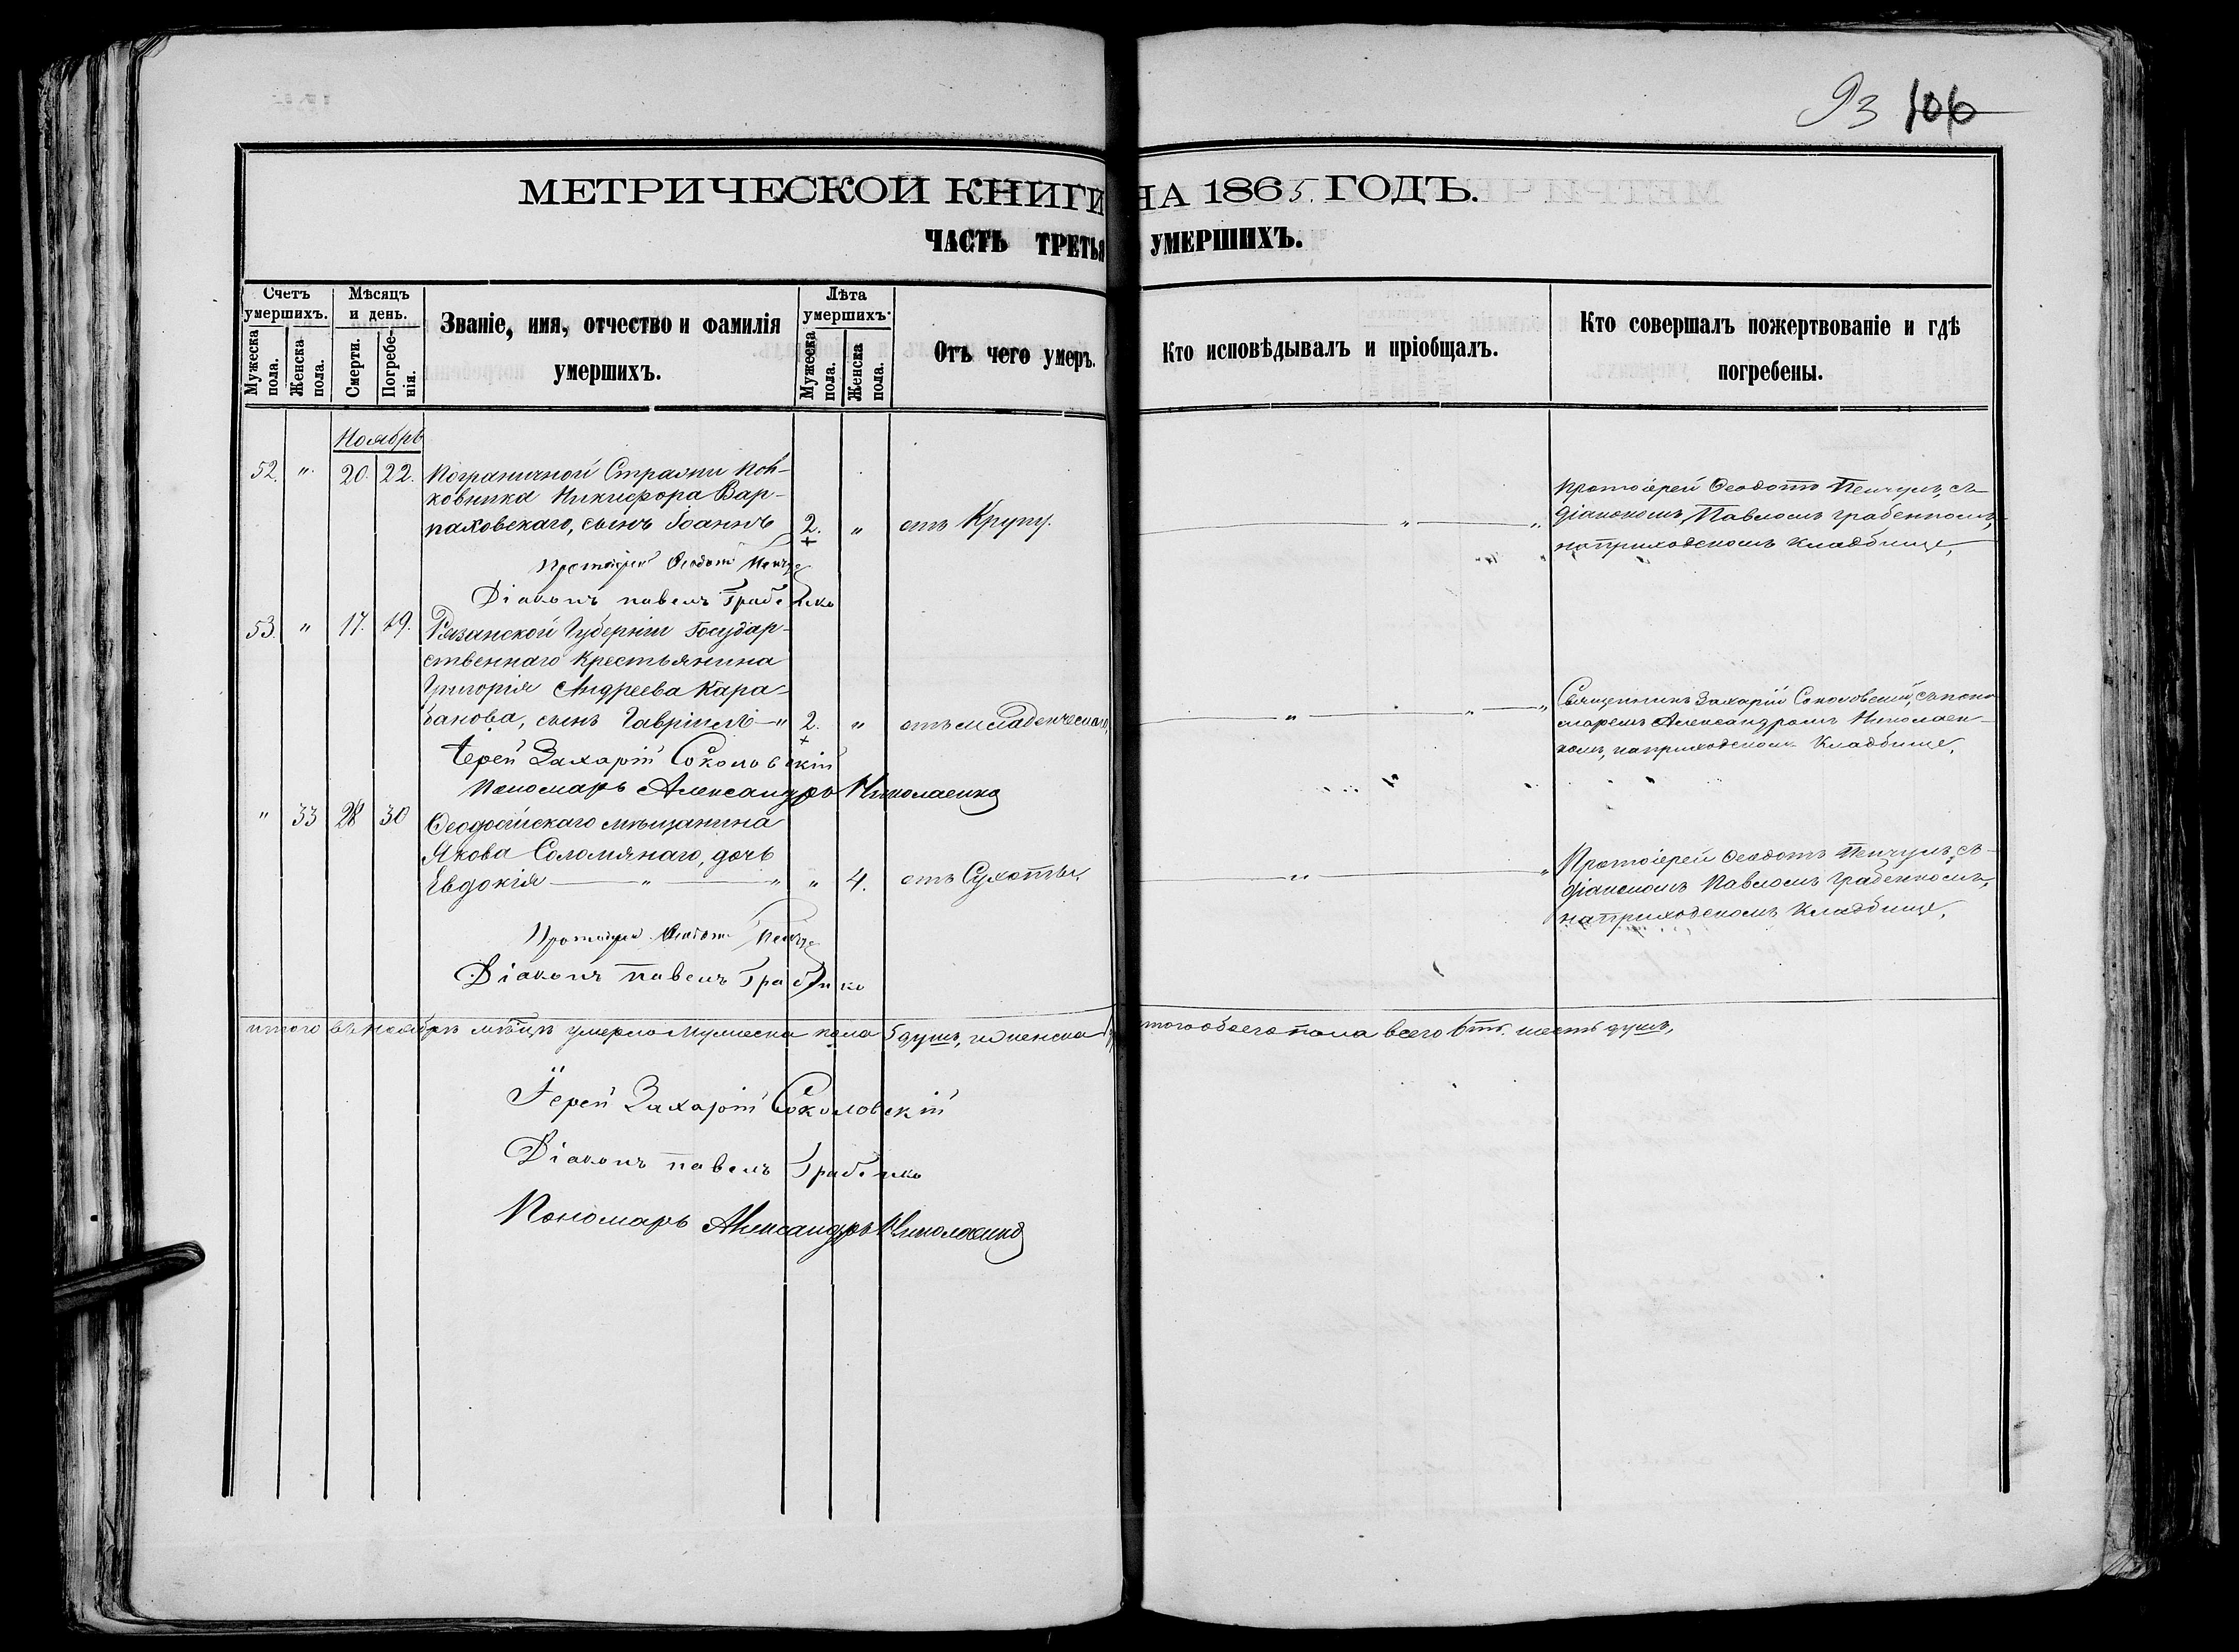 93 106
МЕТРИЧЕСКОЙ КНИГИ НА 1865. ГОДЪ.
ЧАСТЬ ТРЕТЬЯ УМЕРШИХЪ.
Счетъ умершихъ.
Мужеска пола.
Женска пола.
Мѣсяцъ и день.
Смерти.
Погребенія.
Званіе, имя, отчество и фамилія
умершихъ.
Лѣта умершихъ.
Мужеска пола.
Женска пола.
Отъ чего умеръ.
Кто исповѣдывалъ и пріобщалъ.
Кто совершалъ пожертвованіе и гдѣ
погребены.
Ноябрь
52. " 20. 22. Пограничной Стражи
ковника Никифора Вар-
паховскаго, сынъ Іоаннъ 2. " отъ Крупу.
Протоіерей Ѳеодотъ
Діаконъ Павелъ Грабенко
Протоіерей Ѳеодотъ Пенчулъ, съ
діакономъ, Павломъ Грабенкомъ,
на приходскомъ Кладбище,
53. " 17. 19. Рязанской Губерніи Государ-
ственнаго Крестьянина
Григорія Андреева Кара-
банова, сынъ Гавріилъ " 2. " отъ младенческаго,
Іерей Захарій Соколовскій
Пономарь Александръ Николаенко
Священникъ Захарій Соколовскій, съ поно
маремъ Александромъ Николаен-
комъ, на приходскомъ Кладбище,
" 33 28 30 Ѳеодосійскаго мѣщанина
Якова Соломянаго, дочь
Евдокія " " " 4. отъ Сухотки,
Протоіерей Ѳеодотъ
Діаконъ Павелъ Грабенко
Протоіерей Ѳеодотъ Пенчулъ, съ
діакономъ Павломъ Грабенкомъ,
на приходскомъ Кладбище,
итого въ Ноябрѣ мѣсцѣ умерло Мужеска пола 5 душъ, и женска итого обоего пола всего 6ть. шесть душъ,
Іерей Захарій Соколовскій
Діаконъ Павелъ Грабенко
Пономарь Александръ Николаенко